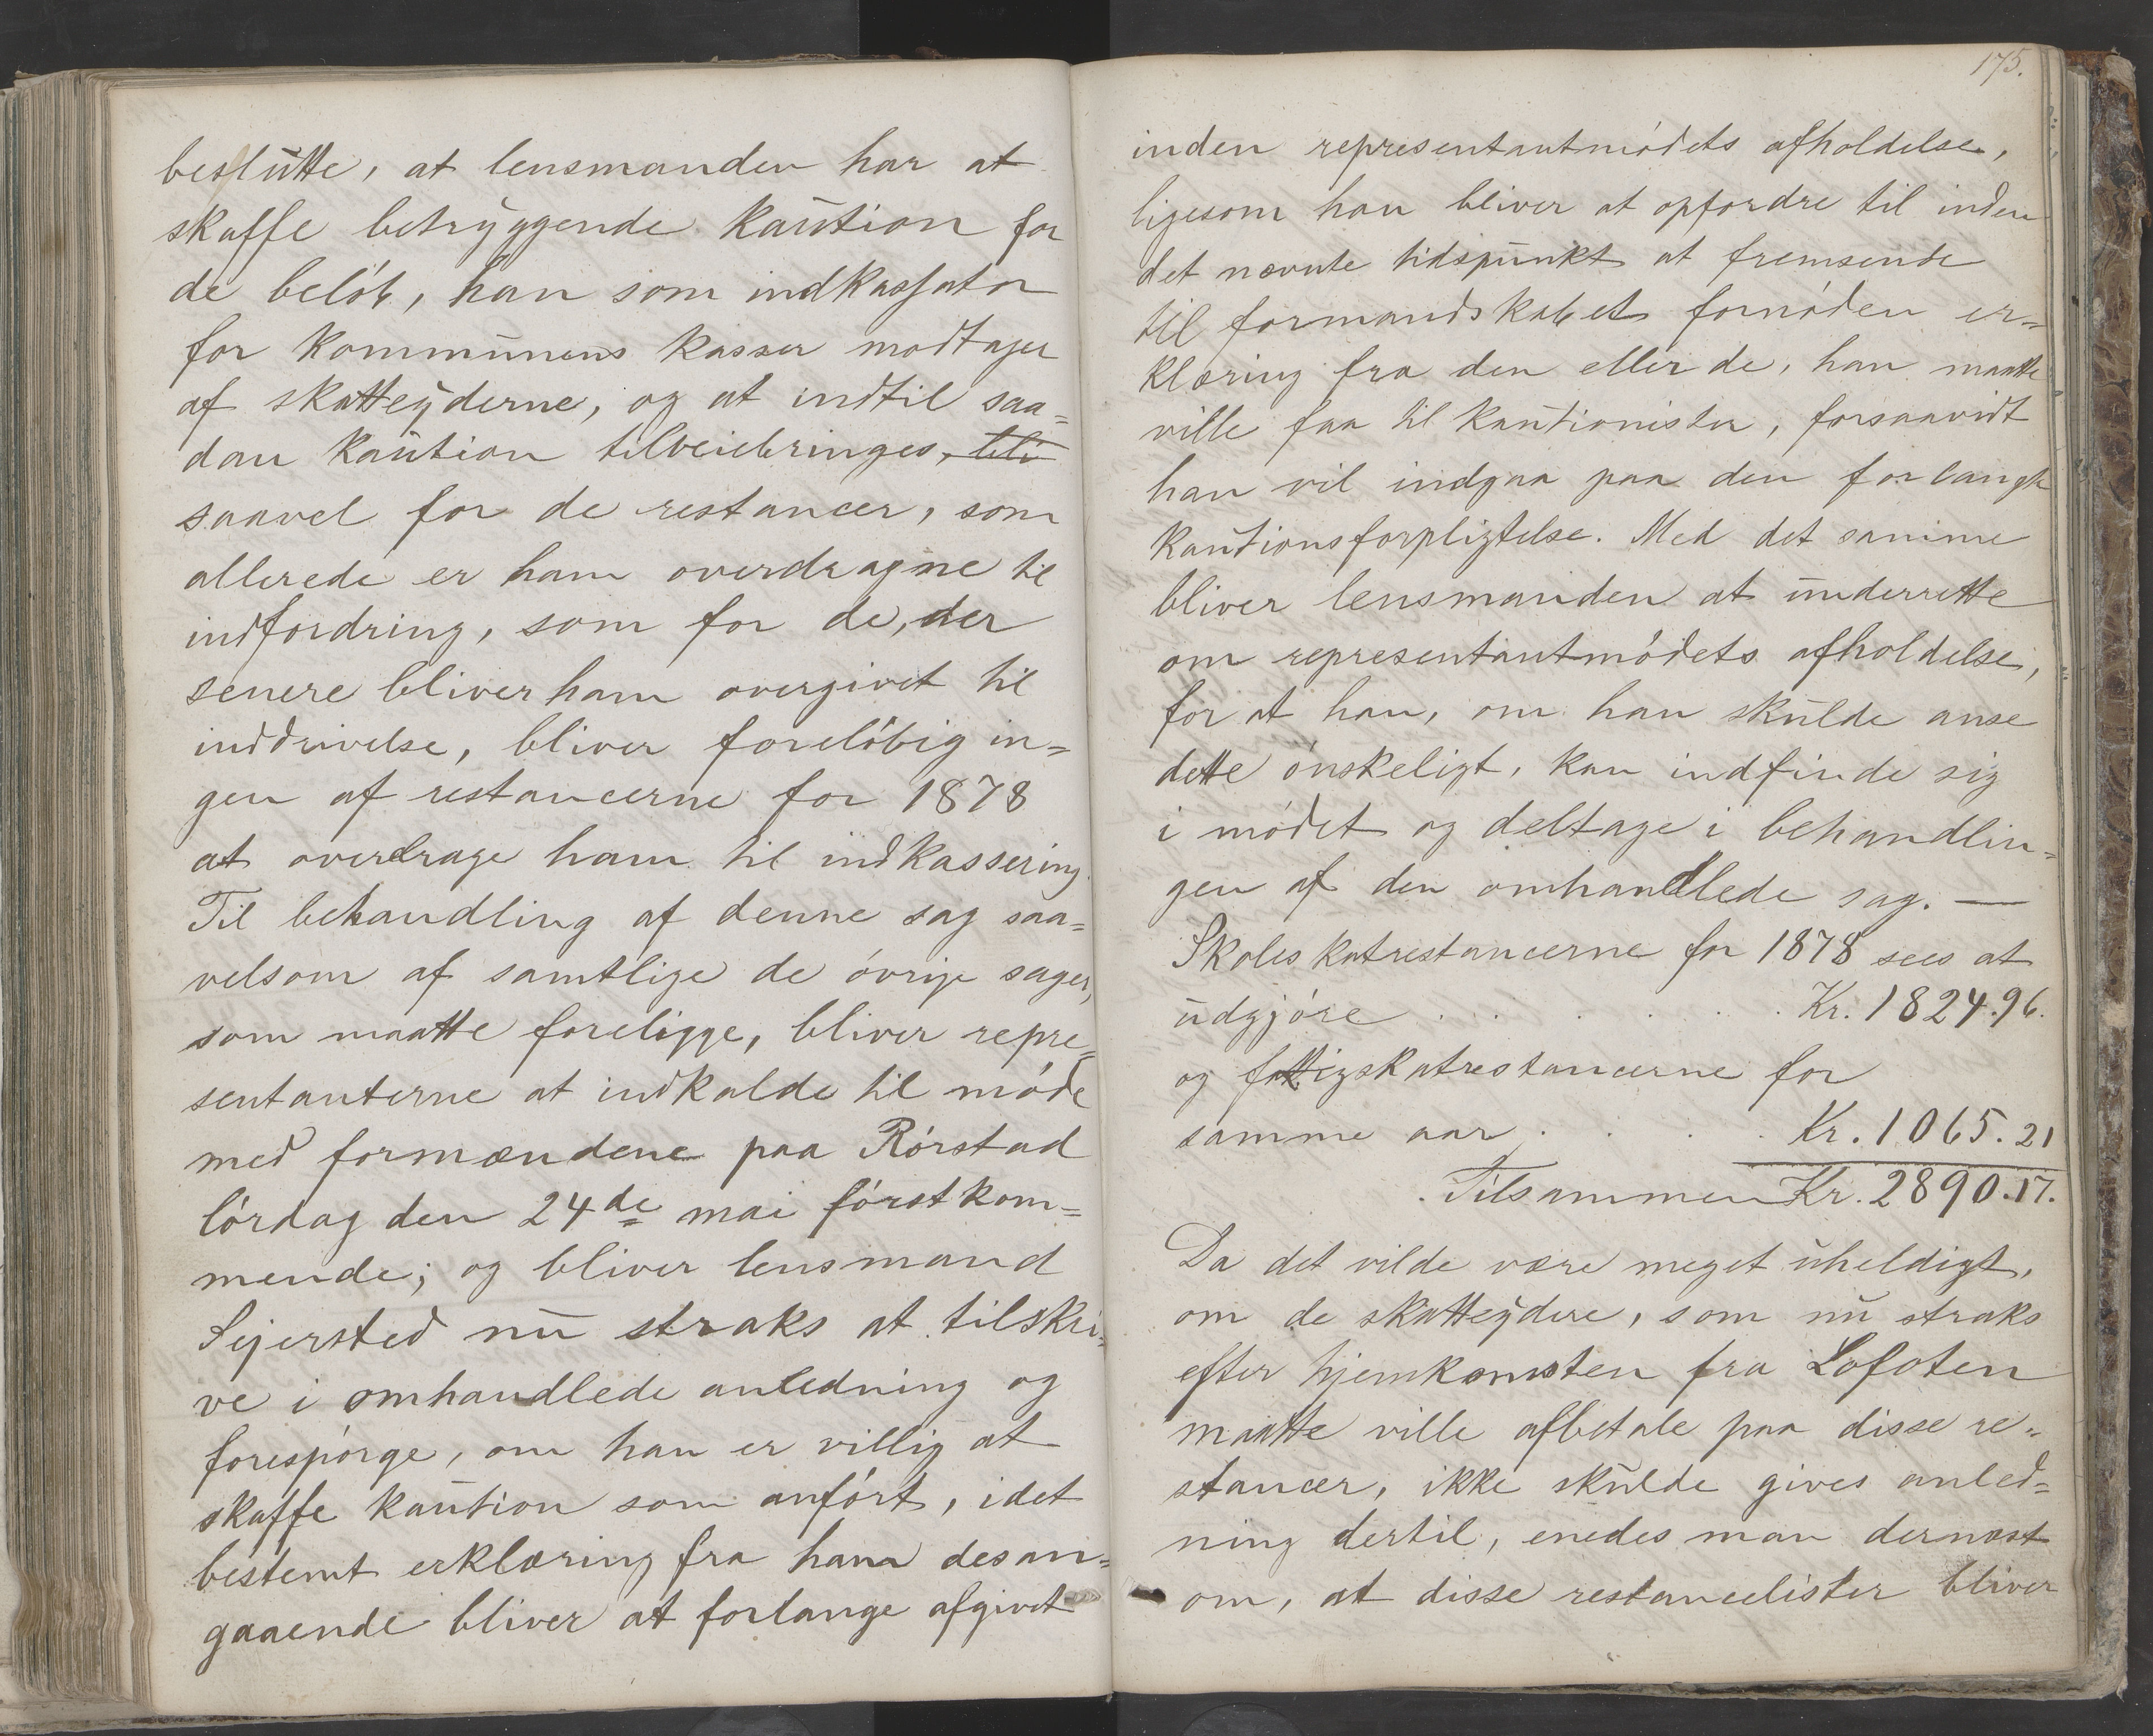 beslutte, at lensmanden har at
skaffe betryggende kaution for
de beløb, han som indkassator
for kommunens kasser modtager
af skatteyderne, og at indtil saa=
dan kaution tilveiebringes, bli
saavel for de restancer, som
allerede er ham overdragne til
indfordring, som for de, der
senere bliver ham overgivet til
inddrivelse, bliver foreløbig in=
gen af restancerne for 1878
at overdrage ham til indkassering.
Til behandling af denne sag saa=
velsom af samtlige de øvrige sager,
som maatte foreligge, bliver repre=
sentanterne at indkalde til møde
med formændene paa Rørstad
lørdag den 24de mai førstkom=
mende; og bliver lensmand
Sejersted nu straks at tilskri=
ve i omhandlede anledning og
forespørge, om han er villig at
skaffe kaution som anført, idet
bestemt erklæring fra ham desan=
gaaende bliver at forlange afgivet
175.
inden representantmødets afholdelse,
ligesom han bliver at opfordre til inden
det nævnte tidspunkt at fremsende
til formandskabet fornøden er=
klæring fra den eller de, han maatte
ville faa til kautionister, forsaavidt
han vil indgaa paa den forlangte
kautionsforpligtelse. Med det samme
bliver lensmanden at underrette
om representantmødets afholdelse,
for at han, om han skulde anse
dette ønskeligt, kan indfinde sig
i mødet og deltage i behandlin=
gen af den omhandlede sag. —
Skoleskatrestancerne for 1878 sees at
udgjøre . . . . . . . Kr. 1824.96.
og fattigskatrestancerne for
samme aar . . . . . Kr. 1065.21
Tilsammen Kr. 2890.17.
Da det vilde være meget uheldigt,
om de skatteydere, som nu straks
efter hjemkomsten fra Lofoten
maatte ville afbetale paa disse re=
stancer, ikke skulde gives anled=
ning dertil, enedes man dernæst
om, at disse restancelister bliver